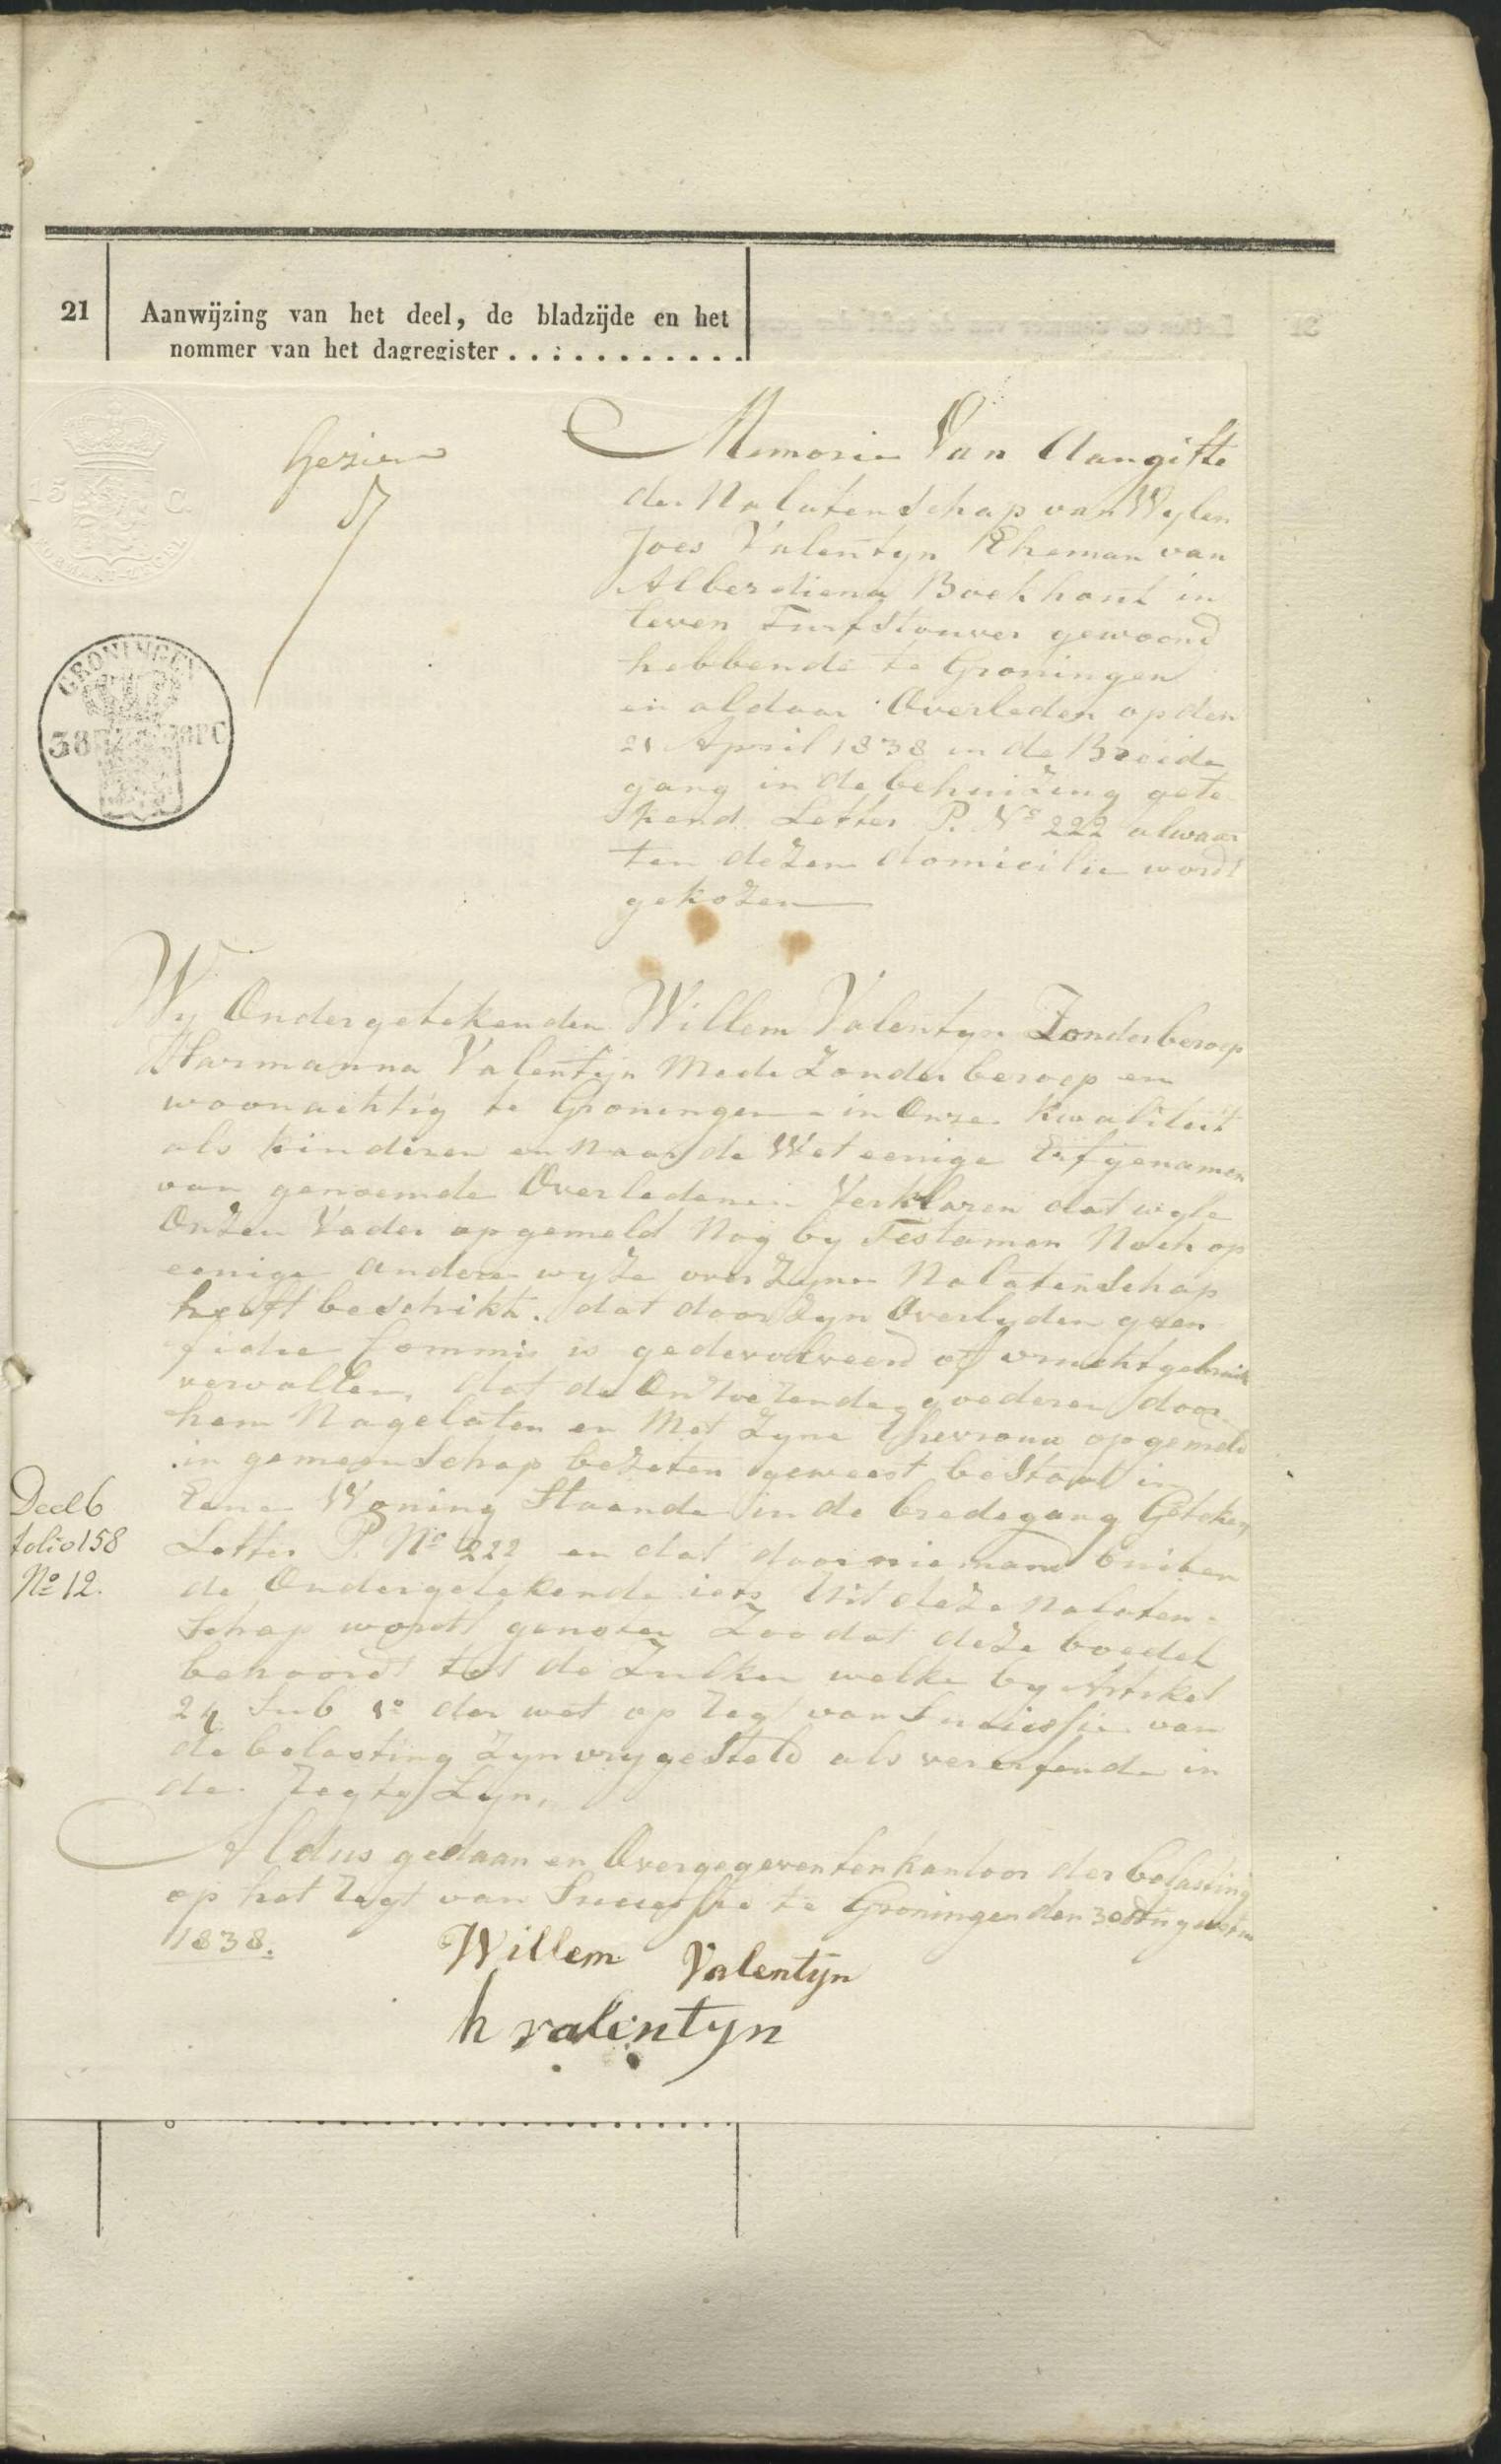 21 Aanwijzing van het deel, de bladzijde en het
nommer van het dagregister
15 C.
Gezien
GRONINGEN
38
Memorie Van Aangifte
der Nalatenschap van Wylen
Joes Valentyn Eheman van
Alberdiena Boekhout in
leven Turfstouwer gewoond
hebbende te Groningen
en aldaar Overleden op den
21 April 1838 in de Breede
gang in de behuizing gete
kend Letter P. No 222 alwaar
ten dezen domicilie wordt
gekozen
Wy Ondergetekenden Willem Valentyn Zonder beroep
Harmanna Valentyn Mede Zonder beroep en
woonachtig te Groningen in Onze Kwaliteit
als kinderen en Naar de Wet eenige Erfgenamen
van genoemde Overledenen Verklaren dat wyle
Onzen Vader opgemeld Nog by Testamen Noch op
eenige andere wyze over Zyne Nalatenschap
heeft beschikt. dat door Zyn Overlyden geen
fidie Commis is gedevolveerd of vruchtgebruik
vervallen, dat de Onroerende goederen door
hem Nagelaten en Met Zyne Ehevrouw opgemeld
in gemeenschap bezeten geweest bestaat in
Eene Woning Staande in de bredegang Geteken
Letter P. No 222 en dat door niemand buiten
de Ondergetekende iets Uit deze Nalaten-
schap wordt genoten Zoodat deze boedel
behoord tot de Zulken welke by Artikel
24 Sub 1o der wet op regt van Sucicssie van
de belasting Zyn vrygesteld als vererfende in
de regte Lyn,
Deel 6
folio 158
No 12.
Aldus gedaan en Overgegeven ten kantoor der belasting
op het regt van Sucessie te Groningen den 30
1838.
Willem Valentyn
h valentyn